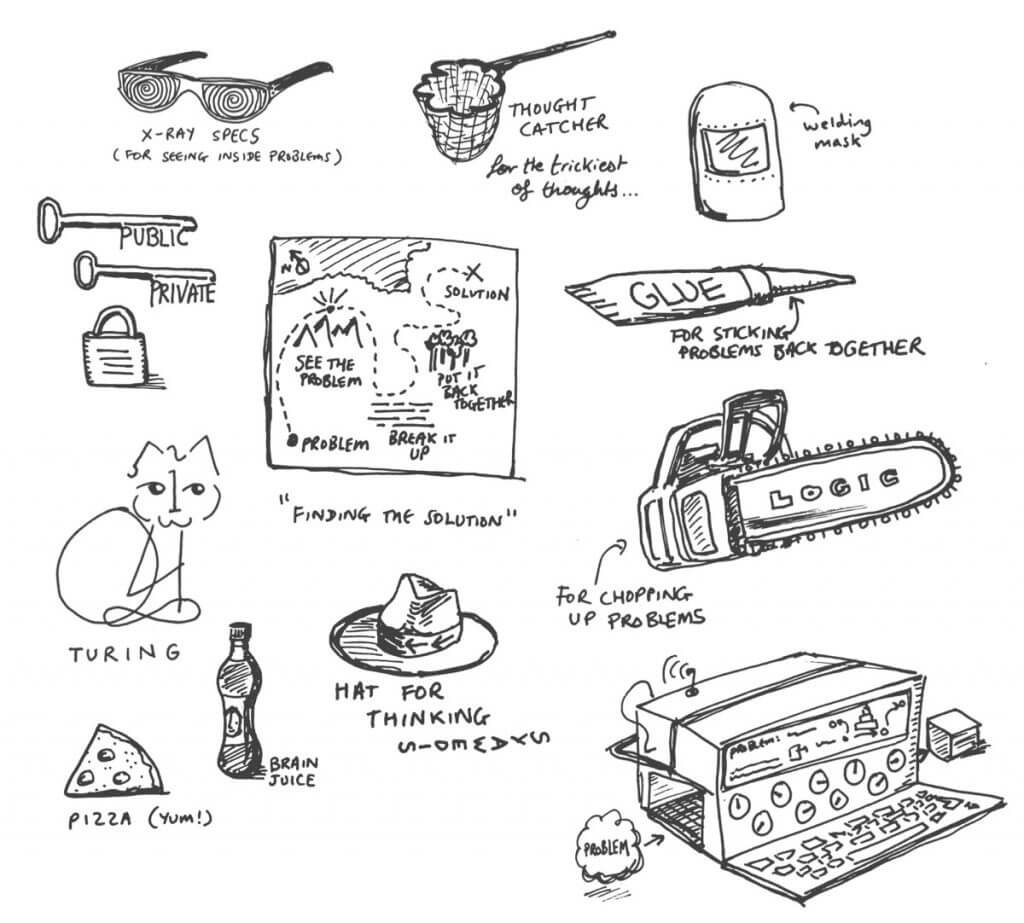 X-RAY SPECS
(FOR SEEING INSIDE PROBLEMS)
THOUGHT
CATCHER
for the trickiest
of thoughts...
welding
mask
PUBLIC
PRIVATE
N
SOLUTION
SEE THE
PROBLEM
PUT IT
BACK
TOGETHER
PROBLEM
BREAK IT
UP
"FINDING THE SOLUTION"
GLUE
FOR STICKING
PROBLEMS BACK TOGETHER
LOGIC
FOR CHOPPING
UP PROBLEMS
TURING
BRAIN
JUICE
HAT FOR
THINKING
SIDEWAYS
PIZZA (YUM!)
PROBLEM:
PROBLEM